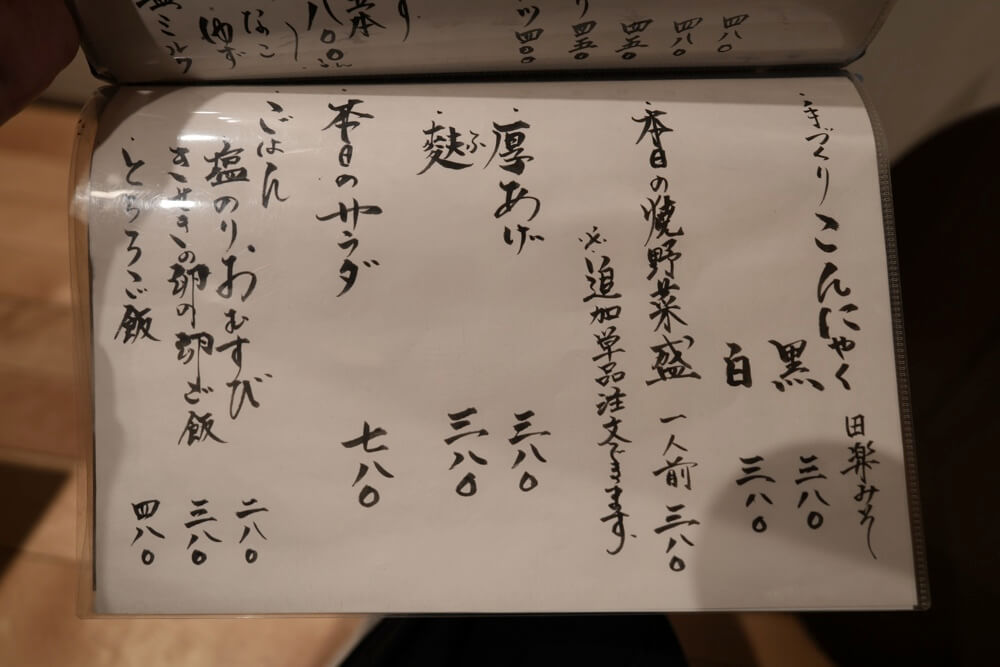 四八〇
四八〇
四五〇
四五〇
四〇〇
八〇〇
なこ
ゆず
塩ミルク
・手づくりこんにゃく 田楽みそ
黒 三八〇
白 三八〇
・本日の焼野菜盛 一人前 三八〇
※追加単品注文できます。
・厚あげ 三八〇
・麩ふ 三八〇
・本日のサラダ 七八〇
・ごはん
塩のり、おむすび 二八〇
の卵の卵ご飯 三八〇
とろろご飯 四八〇